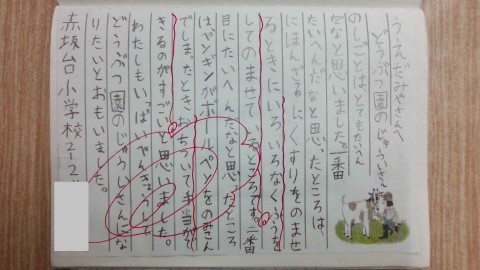 うえだみやさんへ
どうぶつ園のじゅういさん
のしごとは、とてもたいへん
だなと思いました。一番
たいへんだなと思ったところは、
にほんざるにくすりをのませ
るときにいろいろなくふうを
してのませているところです。二番
目にたいへんだなと思ったところ
はペンギンがボールペンをのみこん
でしまったとき、おちついて手当がで
きるのがすごいと思いました。
わたしもいっぱいべんきょうして
どうぶつ園のじゅういさんにな
りたいとおもいました。
赤坂台小学校2-2